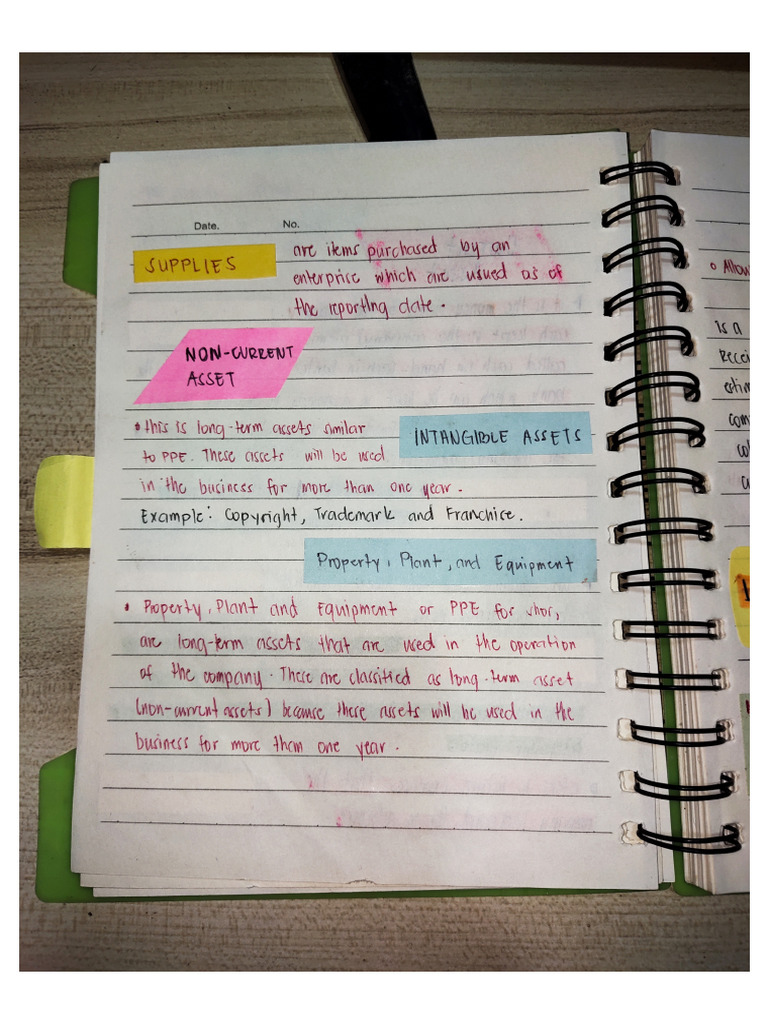 Date. No.
SUPPLIES
are items purchased by an
enterprise which are usued as of
the reporting date.
NON-CURRENT
ASSET
• this is long-term assets similar
to PPE. These assets will be used
in the business for more than one year.
INTANGIBLE ASSETS
Example: Copyright, Trademark and Franchice.
Property, Plant, and Equipment
• Property, Plant and Equipment or PPE for shor,
are long-term assets that are used in the operation
of the company. These are classified as long-term asset
(non-current assets) because these assets will be used in the
business for more than one year.
• Allow
is a
Recei
estim
com
col